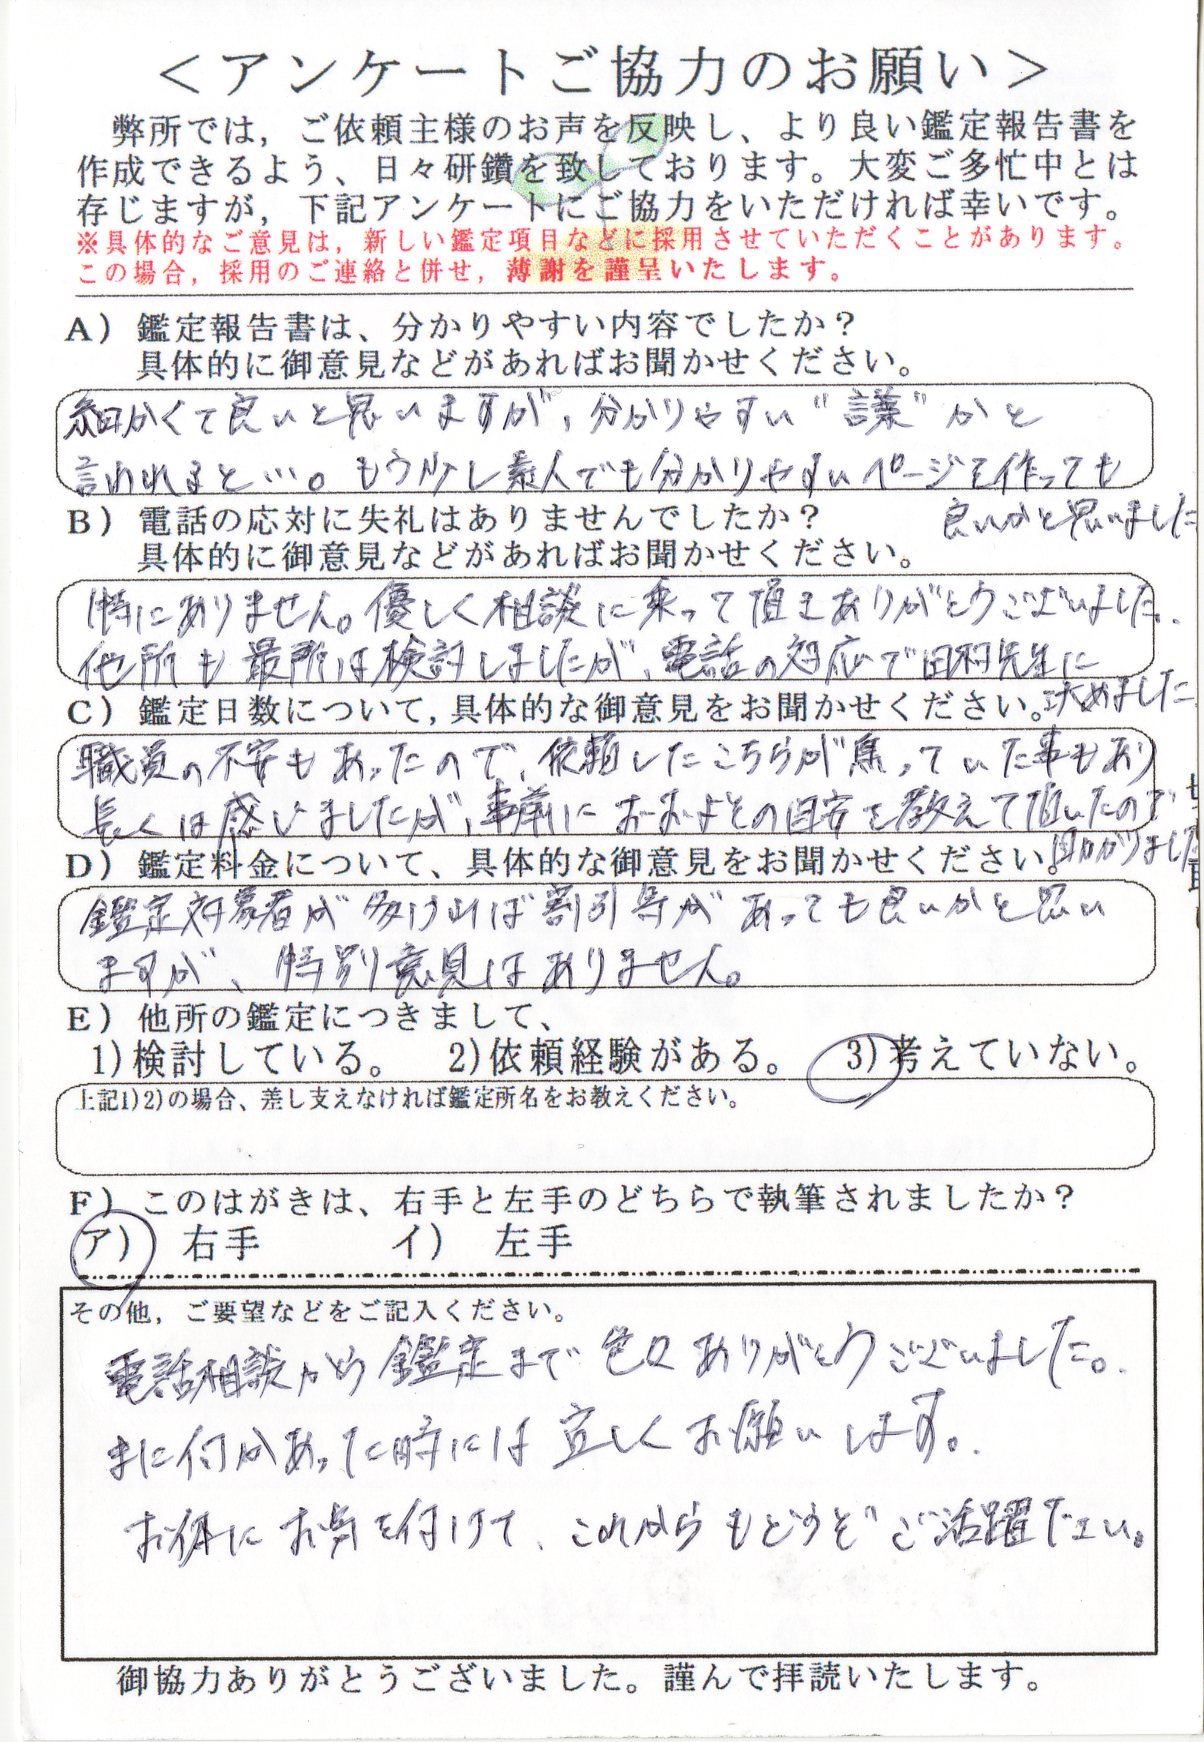 ＜アンケートご協力のお願い＞
弊所では，ご依頼主様のお声を反映し、より良い鑑定報告書を
作成できるよう、日々研鑽を致しております。大変ご多忙中とは
存じますが，下記アンケートにご協力をいただければ幸いです。
※具体的なご意見は，新しい鑑定項目などに採用させていただくことがあります。
この場合，採用のご連絡と併せ，薄謝を謹呈いたします。
A）鑑定報告書は、分かりやすい内容でしたか？
具体的に御意見などがあればお聞かせください。
細かくて良いと思いますが，分かりやすい" "かと
言われると…。もう少し素人でも分かりやすいページを作っても
良いかと思いました
B）電話の応対に失礼はありませんでしたか？
具体的に御意見などがあればお聞かせください。
特にありません。優しく相談に乗って頂きありがとうございました。
他所も最所は検討しましたが、電話の対応で田村先生に
決めました
C）鑑定日数について，具体的な御意見をお聞かせください。
職員の不安もあったので、依頼したこちらが焦っていた事もあり
長くは感じましたが、事前におおよその目安を教えて頂いたので
助かりました
D）鑑定料金について、具体的な御意見をお聞かせください。
鑑定対象者が多ければ割引等があっても良いかと思い
ますが、特別意見はありません。
E）他所の鑑定につきまして、
1)検討している。 2)依頼経験がある。 3)考えていない。
上記1)2)の場合、差し支えなければ鑑定所名をお教えください。
F）このはがきは、右手と左手のどちらで執筆されましたか？
ア） 右手 イ） 左手
その他，ご要望などをご記入ください。
電話相談から鑑定まで色々ありがとうございました。
また何かあった時には宜しくお願いします。
お体にお気を付けて、これからもどうぞご活躍下さい。
御協力ありがとうございました。謹んで拝読いたします。